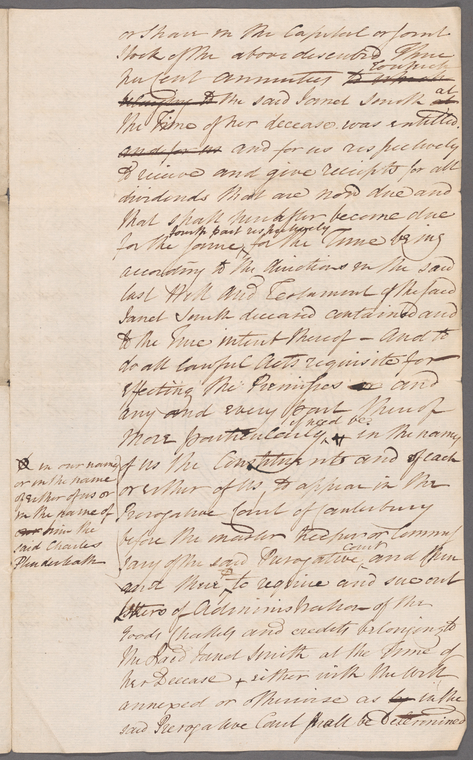 or Share in the Capital or Joint
Stock of the above described Three
per Cent annuities to which
fourth part
the said Janet Smith at
the Time of her decease was entitled
and for us and for us respectively
to receive and give receipts for all
dividends that are now due and
that shall hereafter become due
fourth part respectively
for the same, for the Time being
according to the directions in the said
last Will and Testament of the said
Janet Smith deceased contained and
to the true intent thereof - And to
do all lawful Acts requisite for
effecting the Premisses and
any and every part thereof
if need be
more particularly, in the names
of us the Constituents and of each
or either of us to appear in the
Prerogative Court of Canterbury
before the master keeper or Commis
sary of the said Prerogative Court and then
and there to require and sue out
Letters of Administration of the
Goods Chattels and credits belonging to
the said Janet Smith at the Time of
her Decease either with the Will
annexed or otherwise as by in the
said Prerogative Court shall be Determined
in our name
or in the name
of either of us or
in the name of
him the
said Charles
Plenderleath